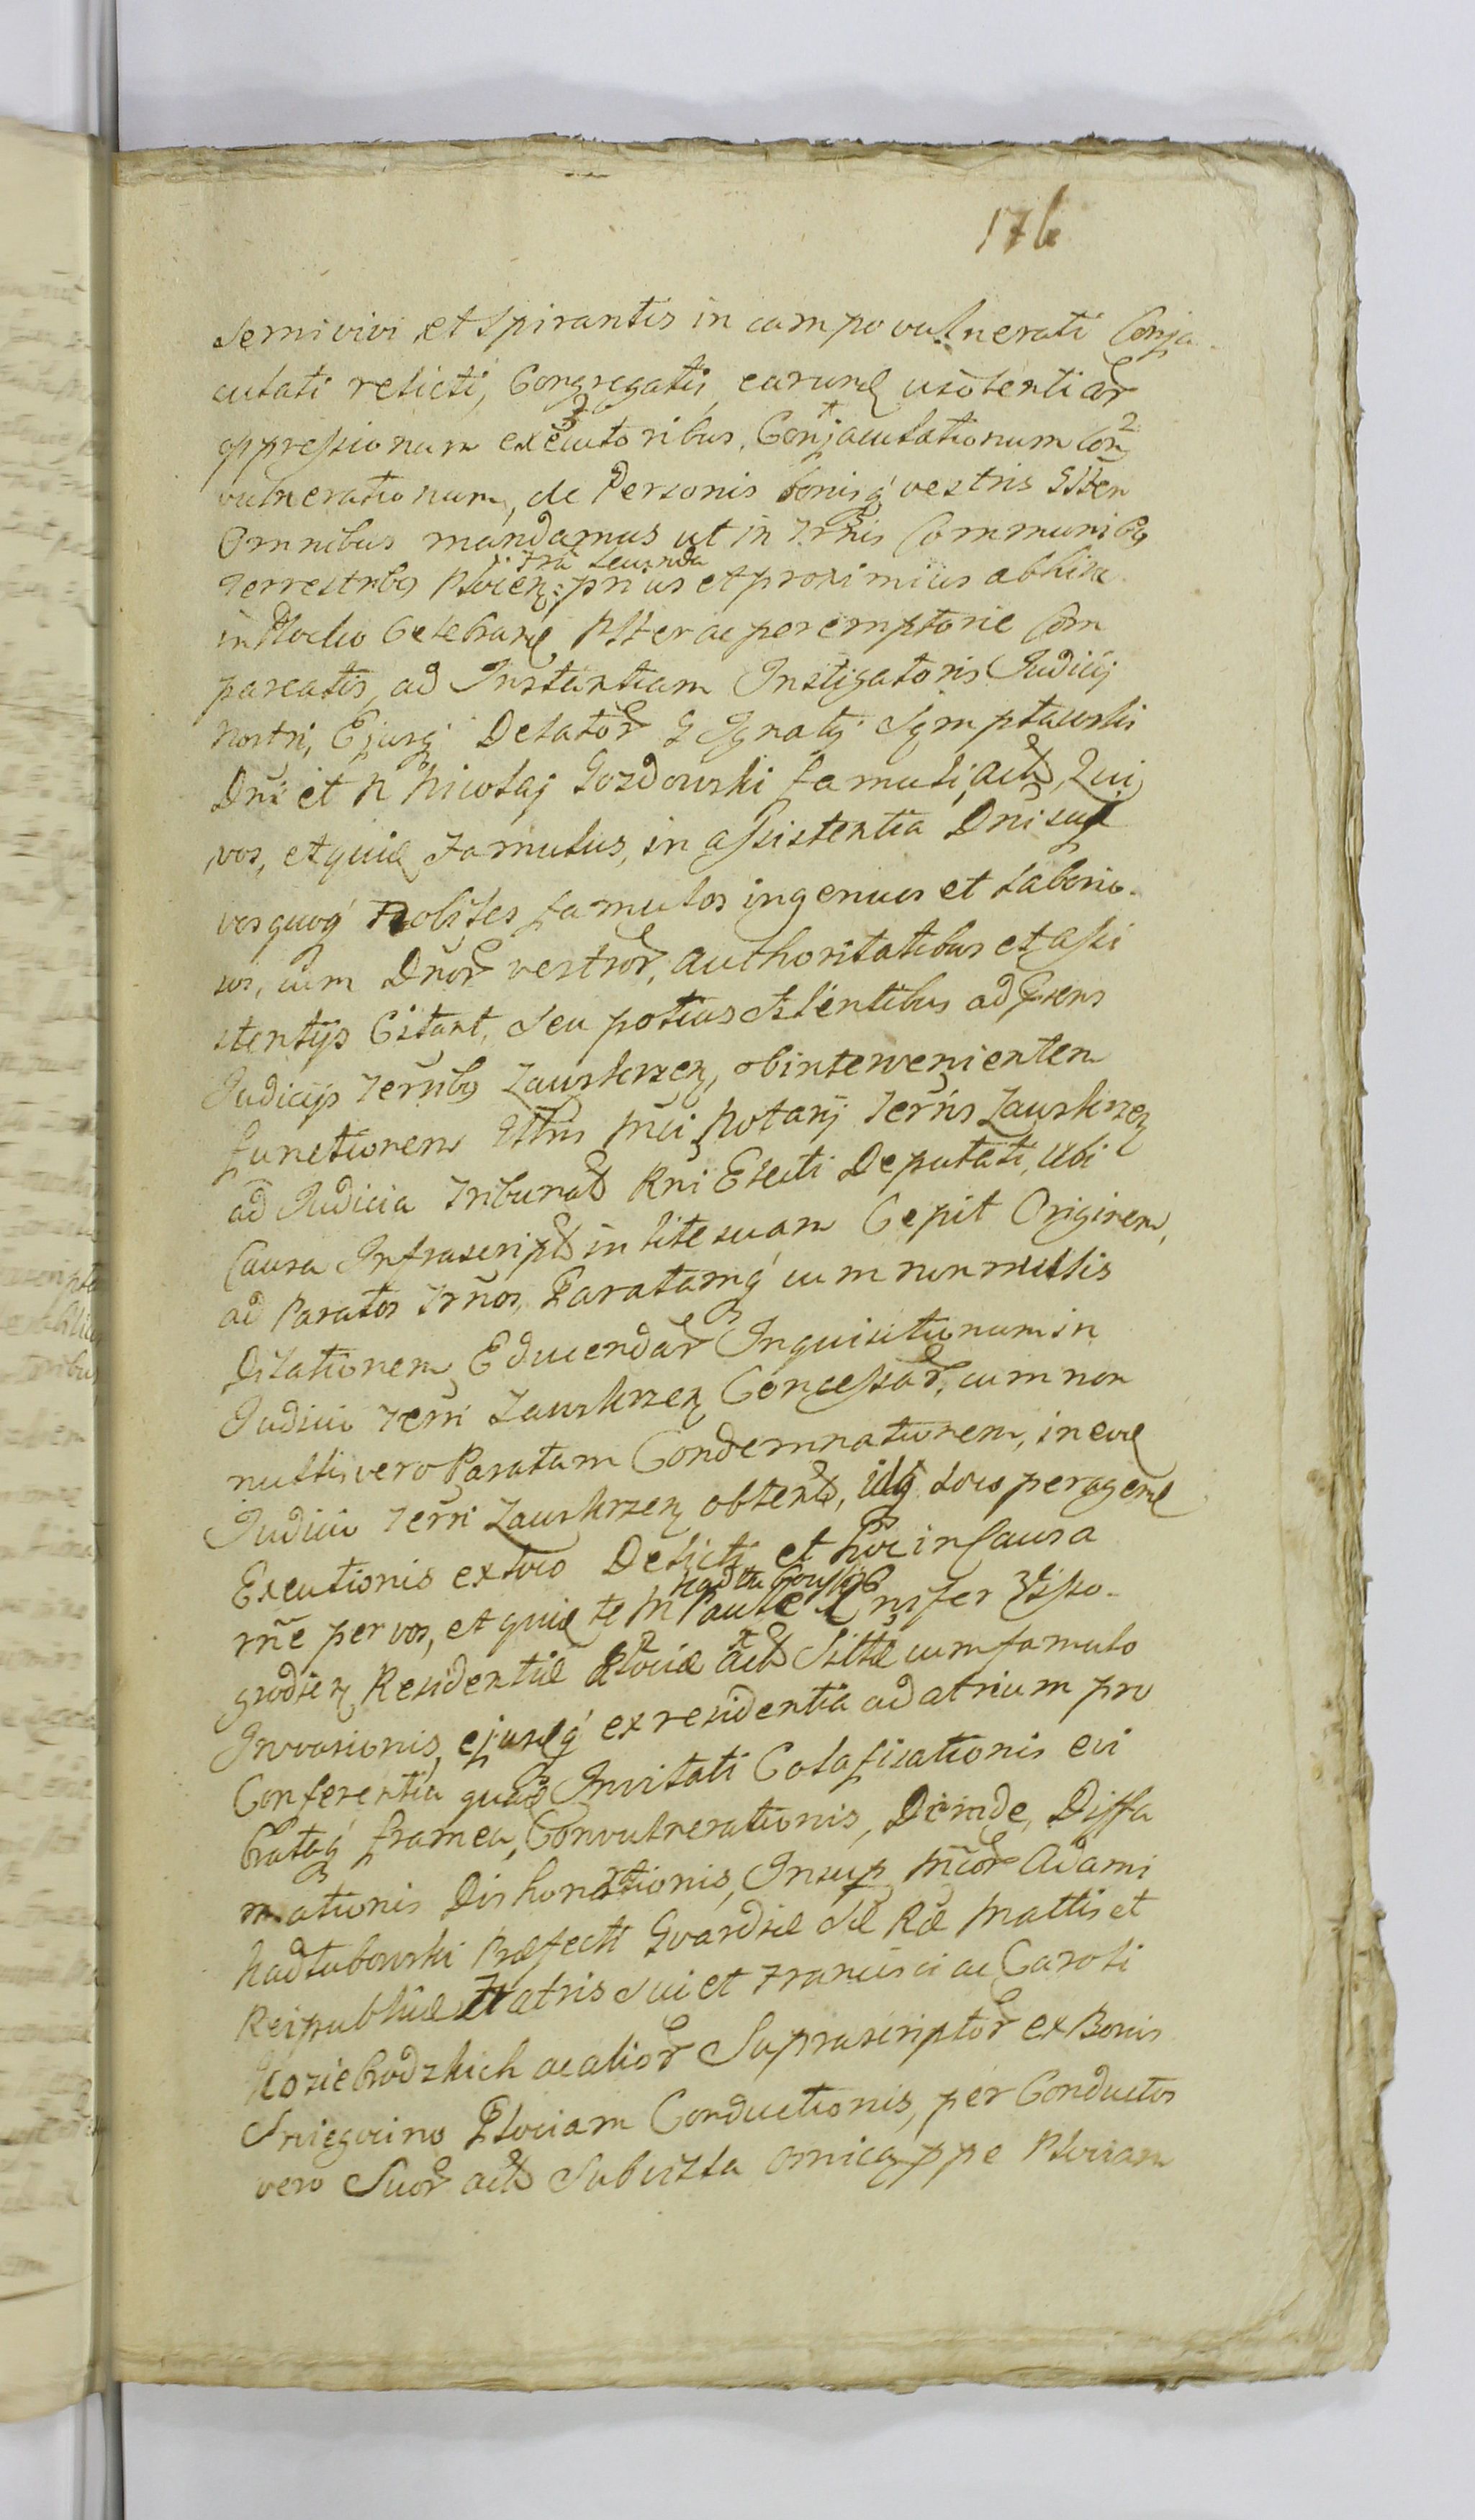 176
Semivivi et Spirantis in campo vulnerati Conja
culati relicti, Congregatis, earund violentiar
oppressionum executoribus, Conjaculationum Con
vulnerationum, de Personis bonisq vestris
Omnibus mandamus ut in Trnis Communibq
fra scunda
Terrestribq Plocien: prius et proximius abhinc
in Plocko Celebrand Pltter ac peremptorie Com
pareatis, ad Instantiam Instigatoris Judicij
Nostri, Ejusq Delator G Ignatij Symptawski
Dni et N Nicolaj Gozdowski famuli, act, Qui
vos, et quid famulus, in assistentia Dni sui
vos quoq Nobiles famulos ingenuos et Laborio-
sos, cum Dnor vestror, authoritatibus et assi
stentijs Citant, seu potius Astentibus ad prns
Judicijs Terribq Zawskrzen, ob intervenientem
functionem Mci Notarij Terris Zawskrzen
ad Judicia Tribunal Rni Electi Deputati, Ubi
Causa Infrascript in lite suam Cepit Originem,
ad Paratos Trnos, Paratamq cum nonnullis
Dilationem, Educendar Inquisitionum in
Judicio Terri Zawskrzen Concessar, cum non
nullis vero Paratam Condemnationem, in eod
Judicio Terri Zawskrzen obtent, loco peragend
Executionis ex loco Delicti et hoc in Causa
Nadtubowski
rne per vos, et quid te M Paule Ensifer Wisso-
grodien Residentiae Plociae act cum famulo
Invasionis, ejusdq ex residentia ad atrium pro
Conferentia quad Invitati Colafisationis evi
brataq framea, Convulnerationis, Deinde, Diffa
mationis Dishonrtionis, Insup Mcor Adami
Nadtubowski Praefecti Gvardiae Sae Rae Mattis et
Reipublicae Fratris sui et Francisci ac Caroli
Koziebrodzkich ac alior Suprascriptor ex Bonis
Sniegocino Plociam Conductionis, per Conductos
vero Suor act Subvizla Omicz ppe Plociam